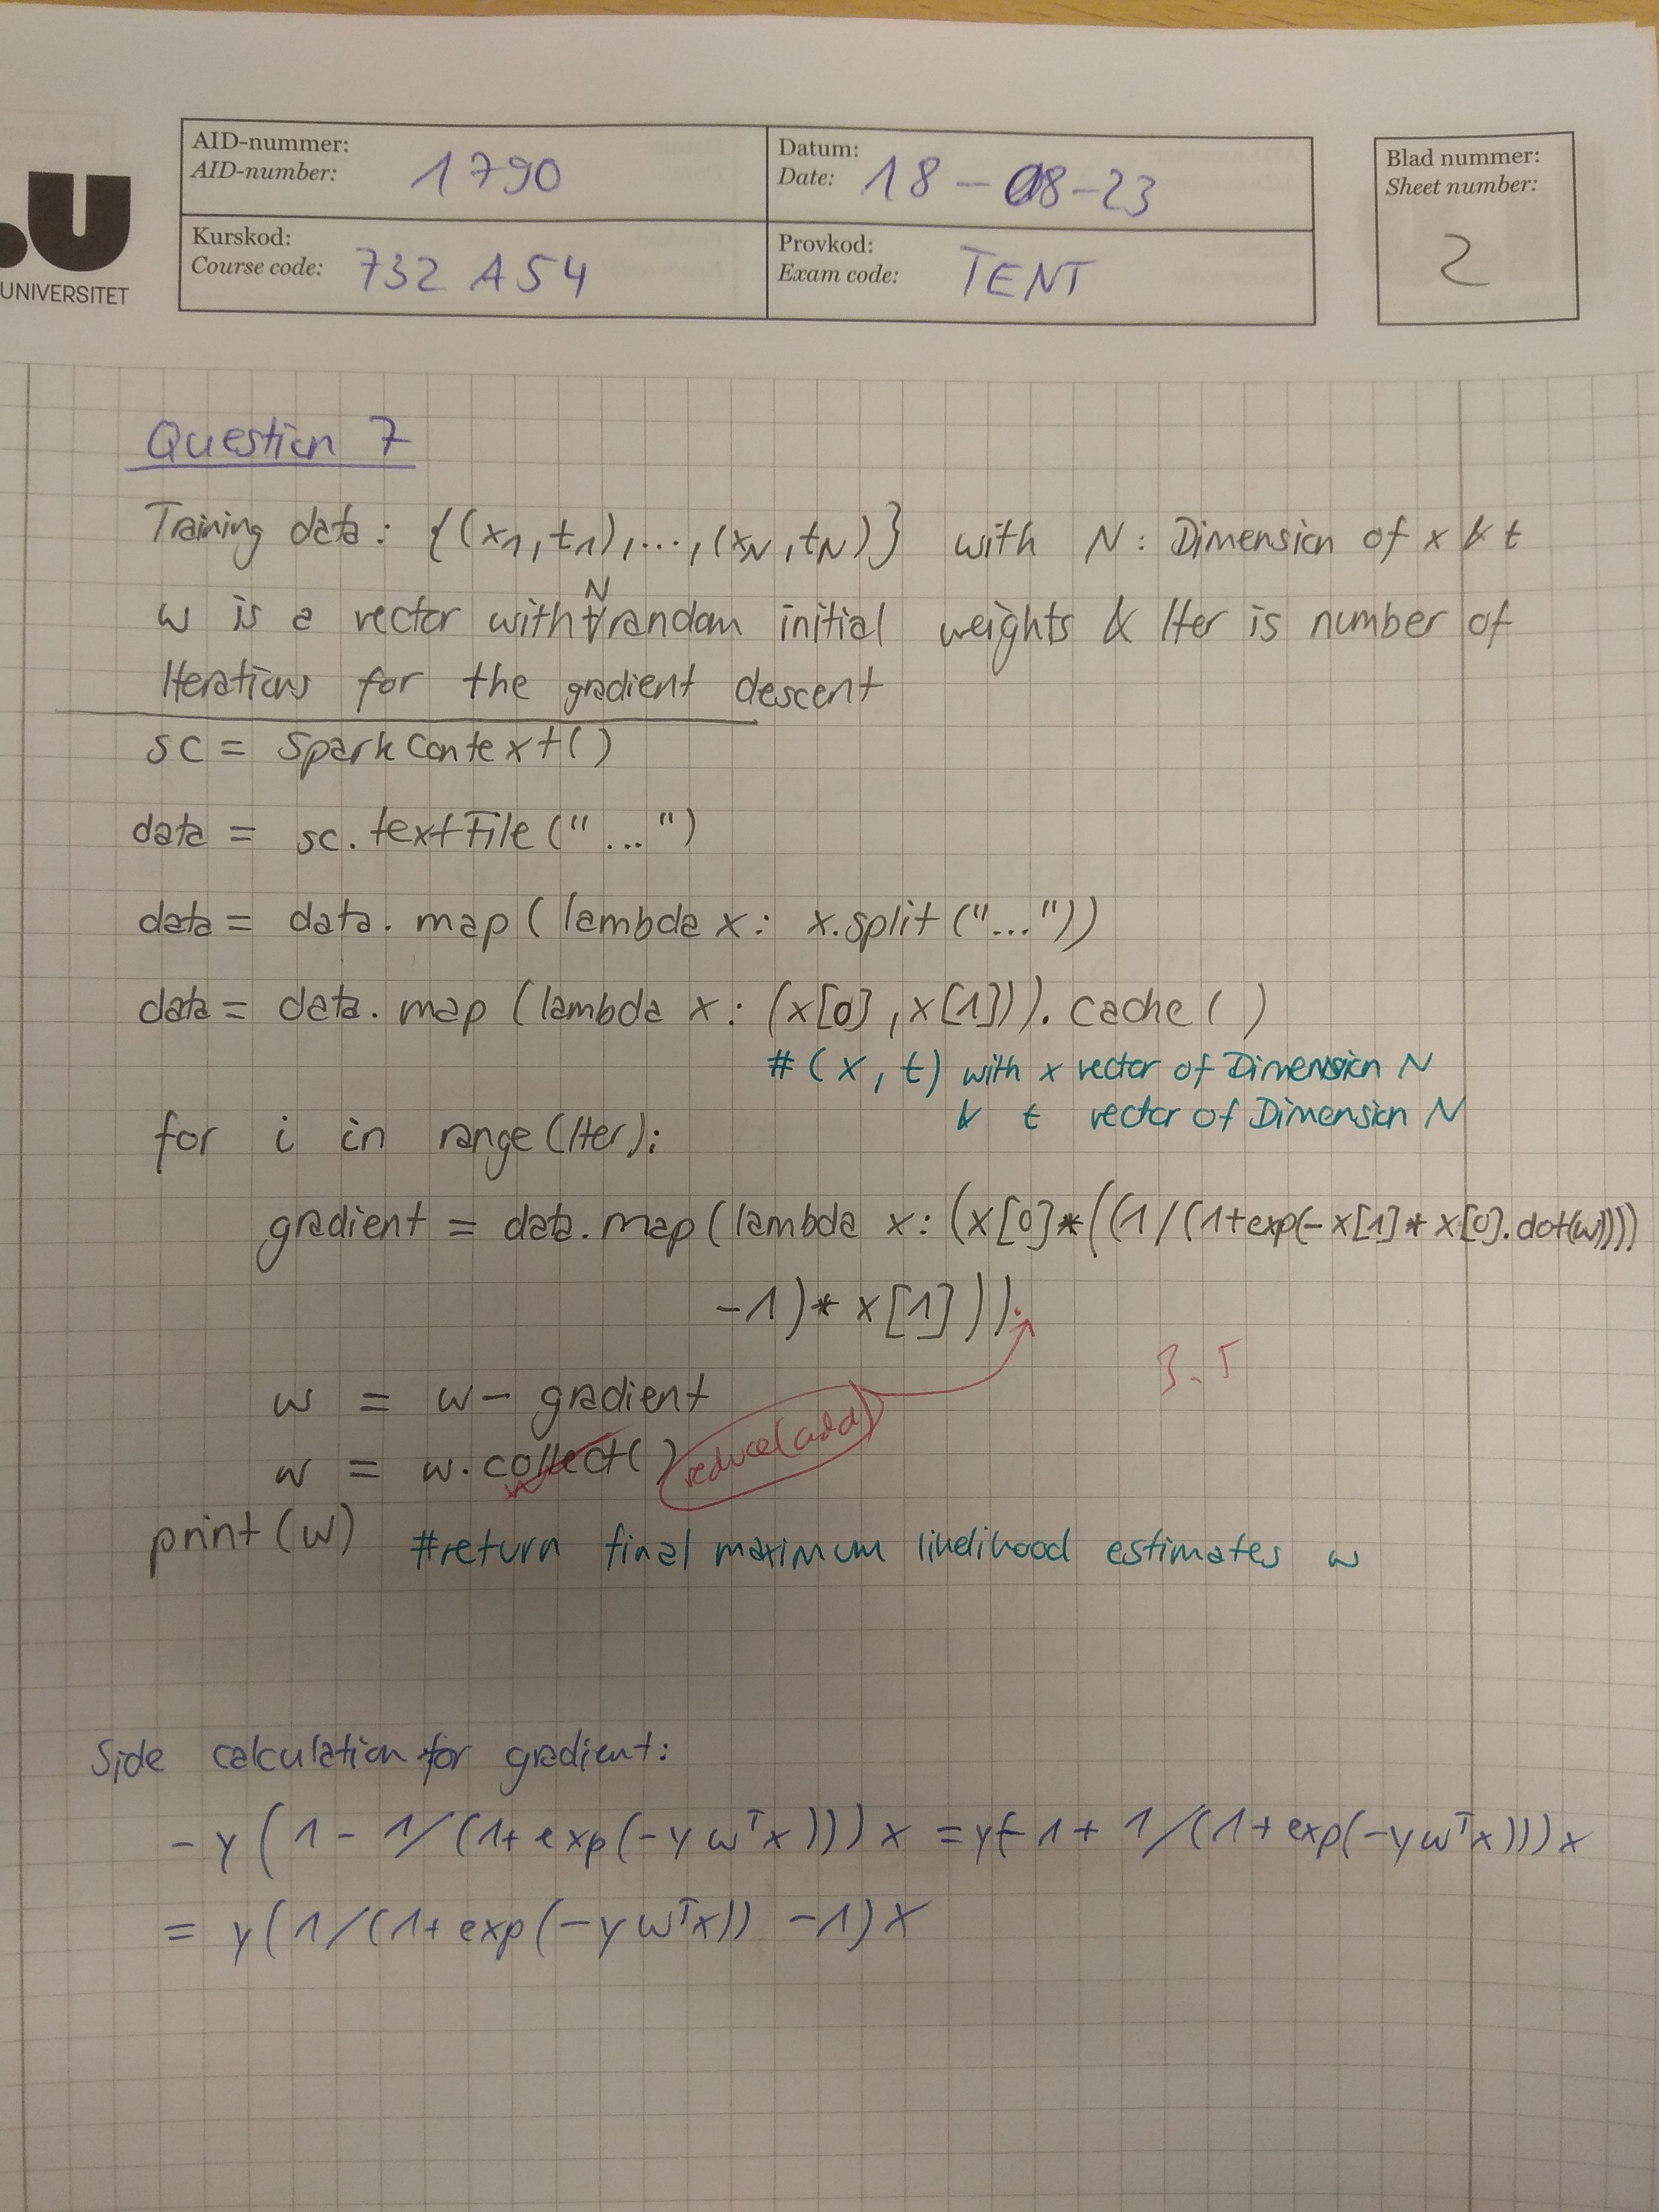 AID-nummer:
AID-number: 1790
Datum:
Date: 18-08-23
Blad nummer:
Sheet number:
2
Kurskod:
Course code: 732 A54
Provkod:
Exam code: TENT
.U
UNIVERSITET
Question 7
Training data: {(x1,t1),...,(xN,tN)} with N: Dimension of x & t
w is a vector with N random initial weights & Iter is number of
Iterations for the gradient descent
sc = SparkContext()
data = sc.textFile("...")
data = data.map(lambda x: x.split("..."))
data = data.map(lambda x: (x[0],x[1])).cache()
#(x,t) with x vector of Dimension N
& t vector of Dimension N
for i in range(Iter):
gradient = data.map(lambda x: (x[0]*((1/(1+exp(-x[1]*x[0].dot(w))))
-1)*x[1])).
3.5
w = w - gradient
w = w.collect() reduce(add)
print(w) #return final maximum likelihood estimates w
Side calculation for gradient:
-y(1-1/(1+exp(-ywᵀx)))x = y(-1+1/(1+exp(-ywᵀx)))x
= y(1/(1+exp(-ywᵀx)) -1)x